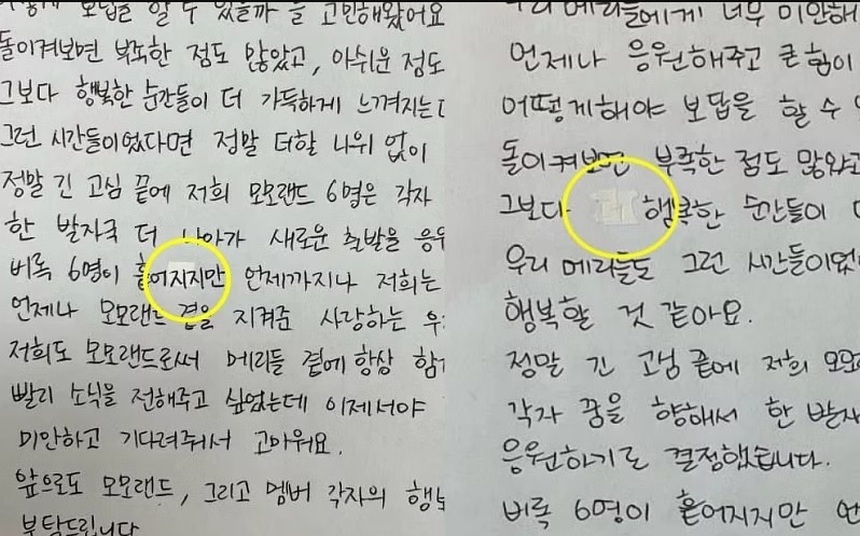 모답을 할 수 있을까 를 고민해왔어요
돌이켜보면 부족한 점도 많았고, 아쉬운 점도
그보다 행복한 순간들이 더 가득하게 느껴지는
그런 시간들이었다면 정말 더할 나위 없이
정말 긴 고심 끝에 저희 모모랜드 6명은 각자
한 발자국 더 나아가 새로운 출발을 응원
비록 6명이 흩어지지만 언제까지나 저희는
언제나 모모랜드 곁을 지켜준 사랑하는 우
저희도 모모랜드로써 메리들 곁에 항상 함
빨리 소식을 전해주고 싶었는데 이제서야
미안하고 기다려줘서 고마워요.
앞으로도 모모랜드, 그리고 멤버 각자의 행
부탁드립니다
우리 메리들에게 너무 미안해
언제나 응원해주고 큰 힘이
어떻게해야 보답을 할 수
돌이켜보면 부족한 점도 많았고
그보다 더 행복한 순간들이
우리 메리들도 그런 시간들이었
행복할 것 같아요.
정말 긴 고심 끝에 저희 모모
각자 꿈을 향해서 한 발자
응원하기로 결정했습니다.
비록 6명이 흩어지지만 언